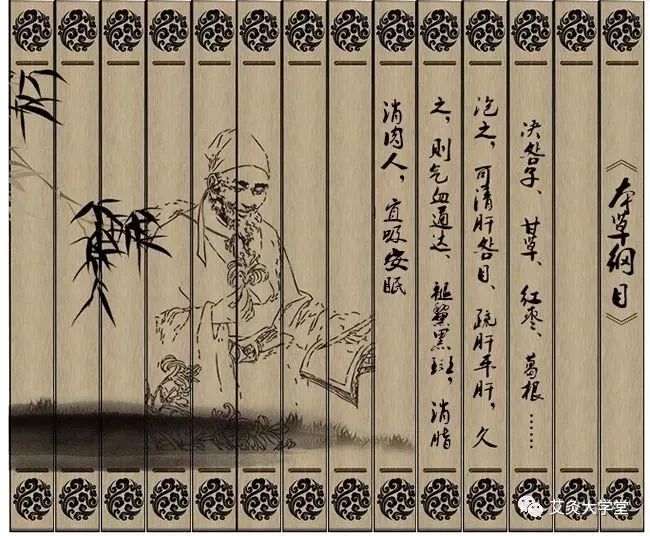 《本草纲目》
决明子、甘草、红枣、葛根……
泡之，可清肝明目、疏肝平肝，久
之，则气血通达、褪黧黑斑，消脂
消肉人，宜吸安眠
艾灸大学堂